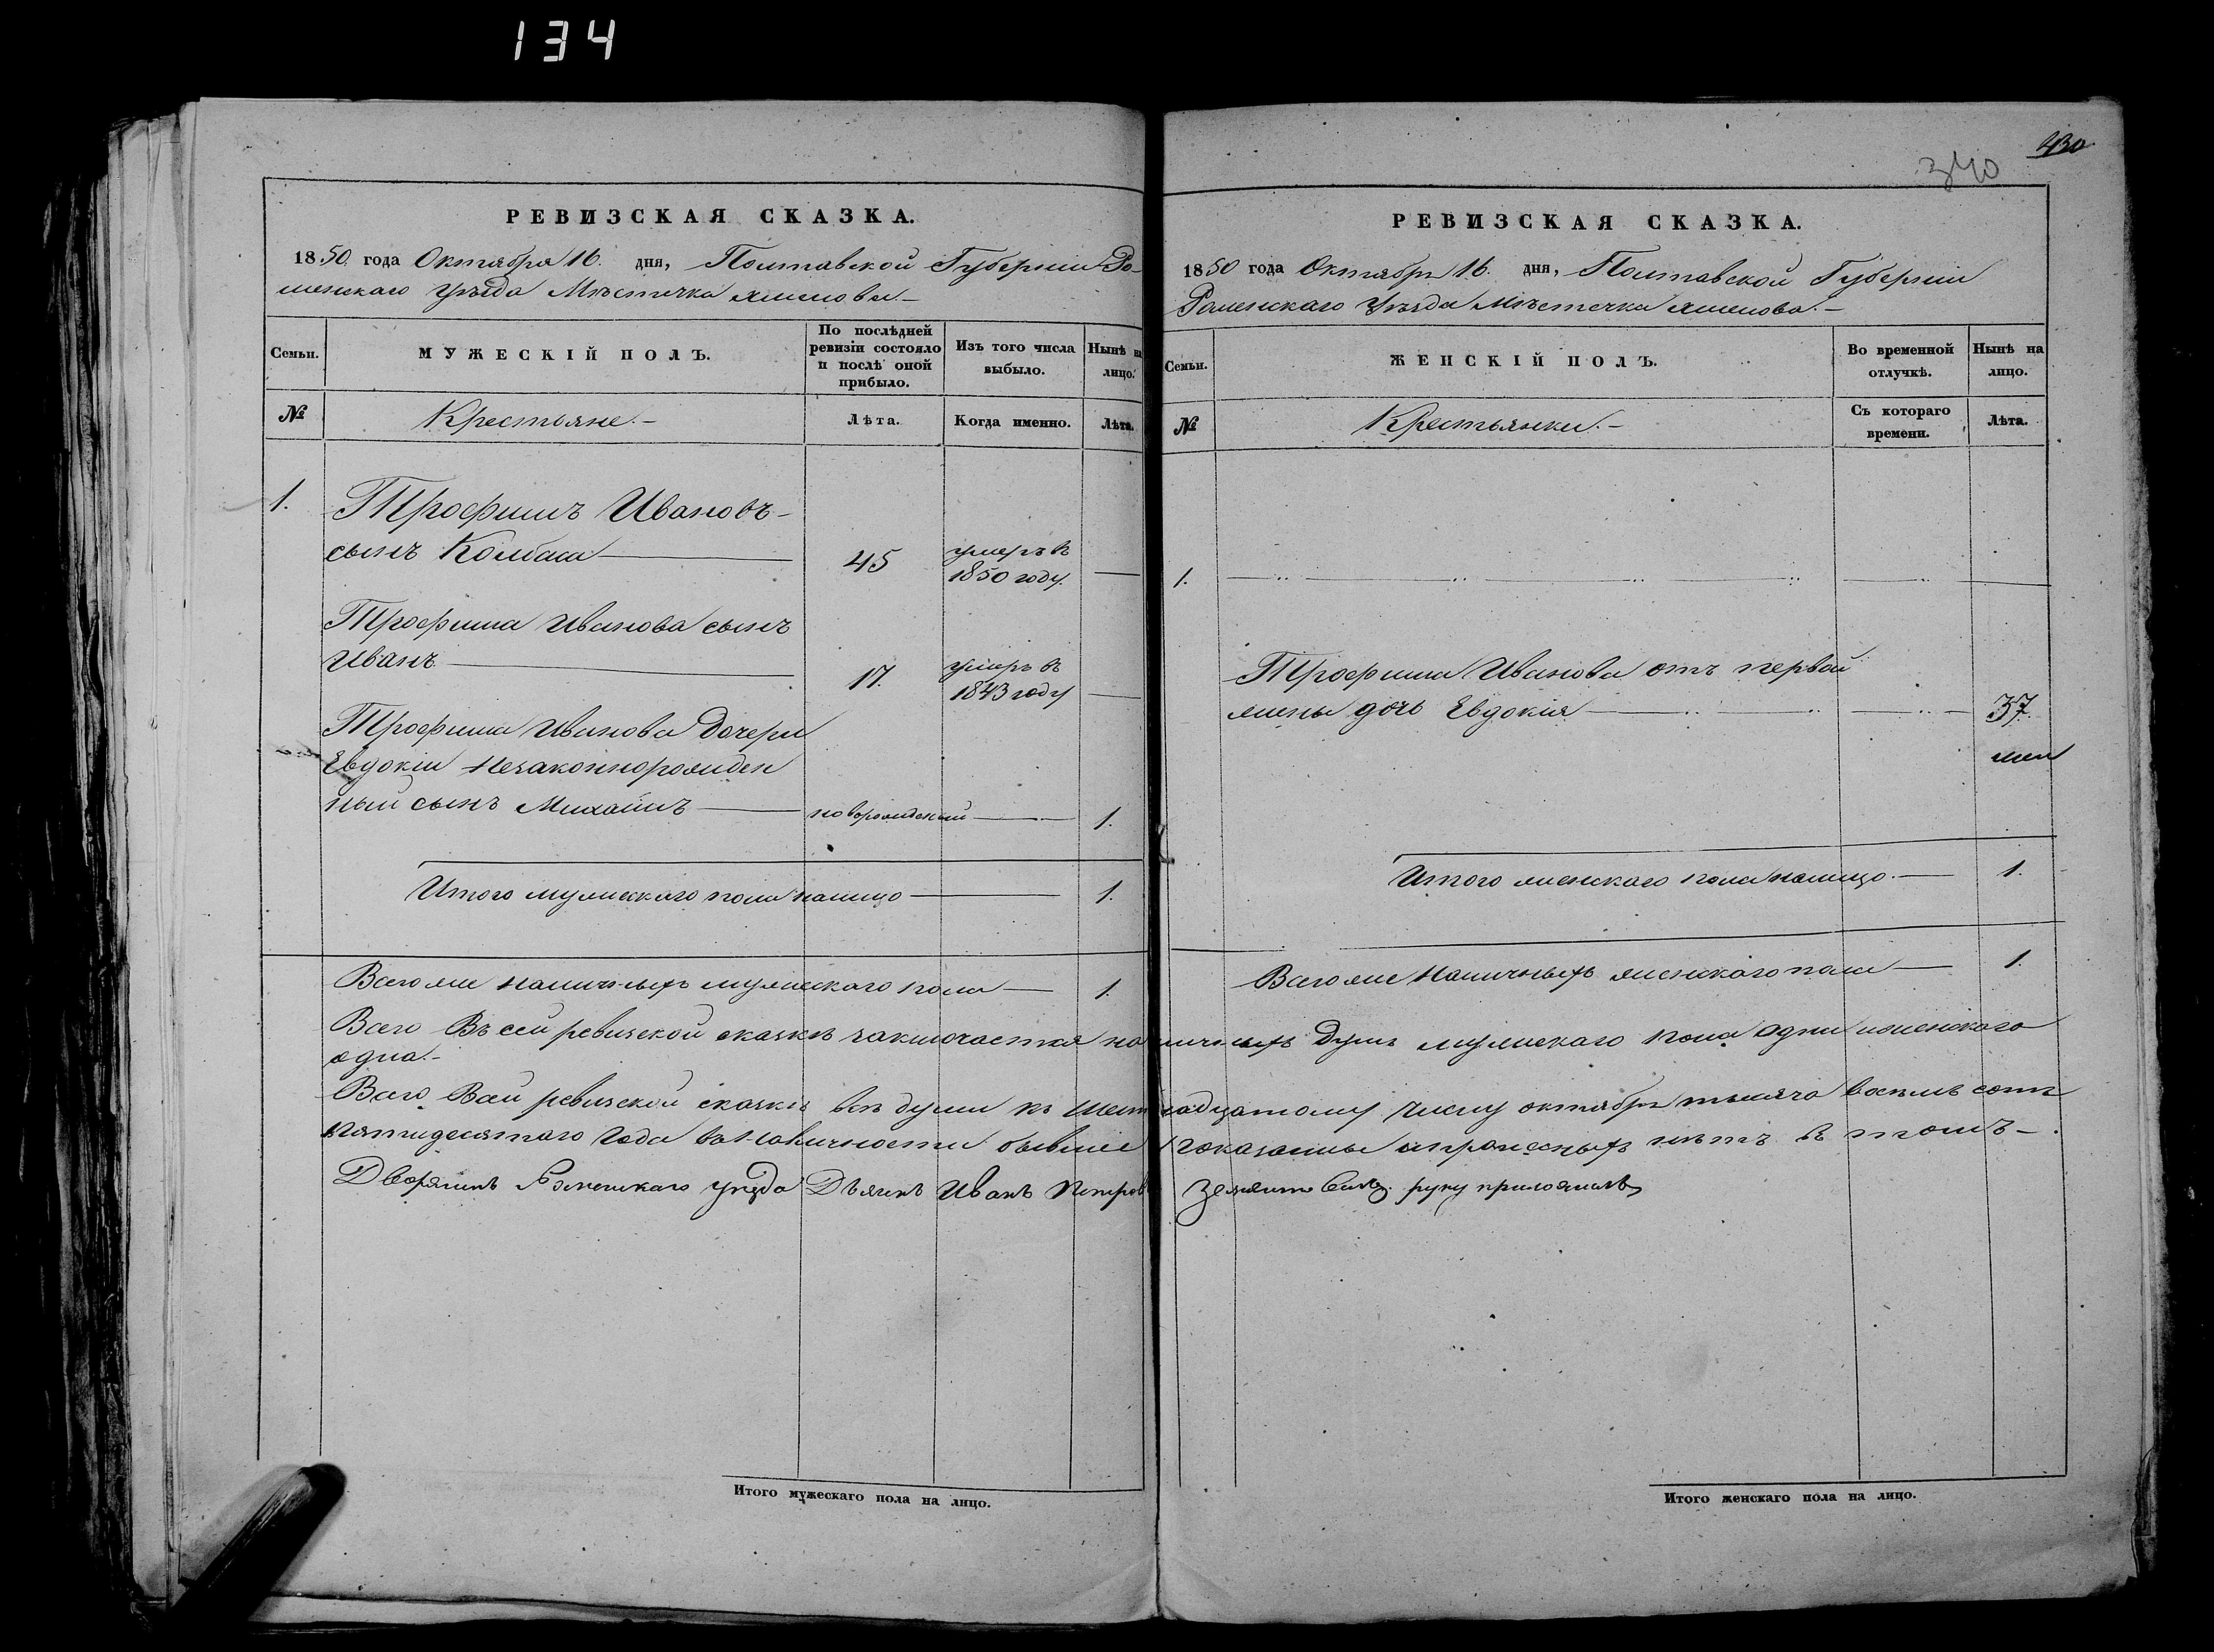 134
РЕВИЗСКАЯ СКАЗКА.
1850 года Октября 16. дня, Полтавской Губернии Ро-
менскаго уѣзда Мѣстечка
Семьи.
МУЖЕСКІЙ ПОЛЪ.
По послѣдней
ревизіи состояло
и послѣ оной
прибыло.
Изъ того числа
выбыло.
Нынѣ на
лицо.
№
Крестьяне.-
Лѣта.
Когда именно.
Лѣта.
1.
Трофимъ Ивановъ-
сынъ
45
умеръ в
1850 году.
Трофима Иванова сынъ
Иванъ
17.
умеръ въ
1843 году
Трофима Иванова дочери
Евдокіи незаконнорожден
ный сынъ Михайлъ
новорожденый
1.
Итого мужескаго пола налицо
1.
Всего же наличныхъ мужескаго пола
1.
РЕВИЗСКАЯ СКАЗКА.
430
340
1850 года Октября 16. дня, Полтавской Губерніи
Роменскаго уѣзда Мѣстечка
Семьи.
ЖЕНСКІЙ ПОЛЪ.
Во временной
отлучкѣ.
Нынѣ на
лицо.
№
Крестьянки.-
Съ котораго
времени.
Лѣта.
1.
Трофима Иванова отъ первой
жены дочь Евдокія
37.
Итого женскаго пола налицо.
1.
Всего же наличныхъ женскаго пола
1.
Всего Въ сей ревизской сказкѣ заключается наличныхъ душъ мужескаго пола одна женскаго
одна.-
Всего Въ сей ревизской сказкѣ всѣ души къ шестнадцатому числу октября тысяча восемь сотъ
пятидесятаго года въ наличности бывшіе показанны и прописныхъ нѣтъ въ томъ-
Дворянинъ Роменскаго уѣзда Иванъ Петровъ руку приложилъ
Итого мужескаго пола на лицо.
Итого женскаго пола на лицо.